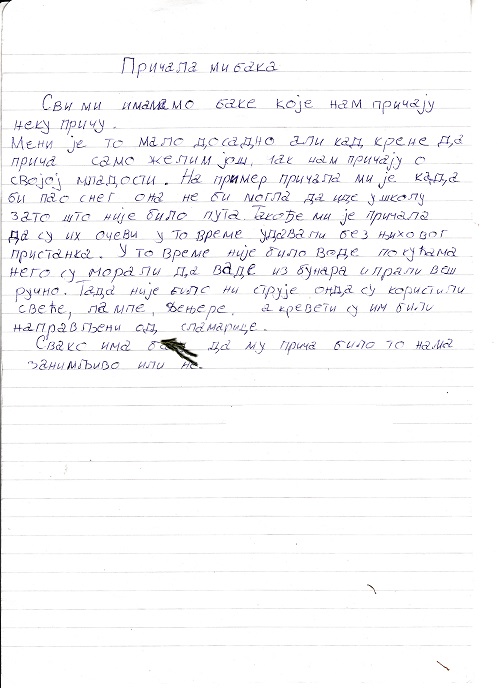 Причала ми бака
Сви ми имамамо баке које нам причају
неку причу.
Мени је то мало досадно али кад крене да
прича само желим још, јак нам причају о
својој младости. На пример причала ми је када
би пао снег она не би могла да иде у школу
зато што није било пута. Такође ми је причала
да су их очеви у то време удавали без њиховог
пристанка. У то време није било воде по кућама
него су морали да ваде из бунара и прали веш
ручно. Тада није било ни струје онда су користили
свеће, лампе, фењере, а кревети су им били
направљени од сламарице.
Свако има баку да му прича било то нама
занимљиво или не.